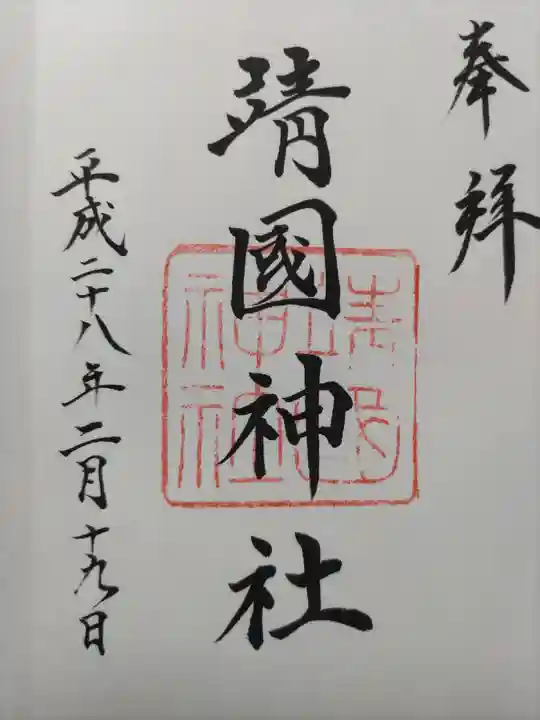 奉拜
靖國神社
靖國
神社
平成二十八年二月十九日